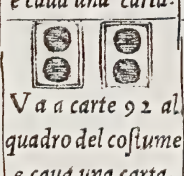 e caua una carta.
Va a carte 92 al
quadro del coſtume
e cauá una carta